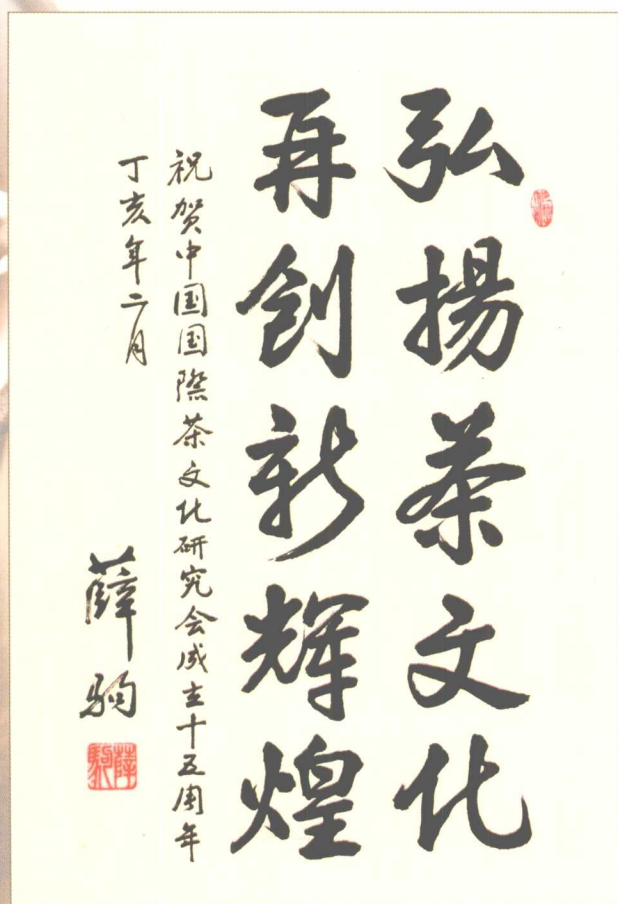 弘揚茶文化
再创新辉煌
祝贺中国国際茶文化研究会成立十五周年
丁亥年二月
薛驹
薛駒